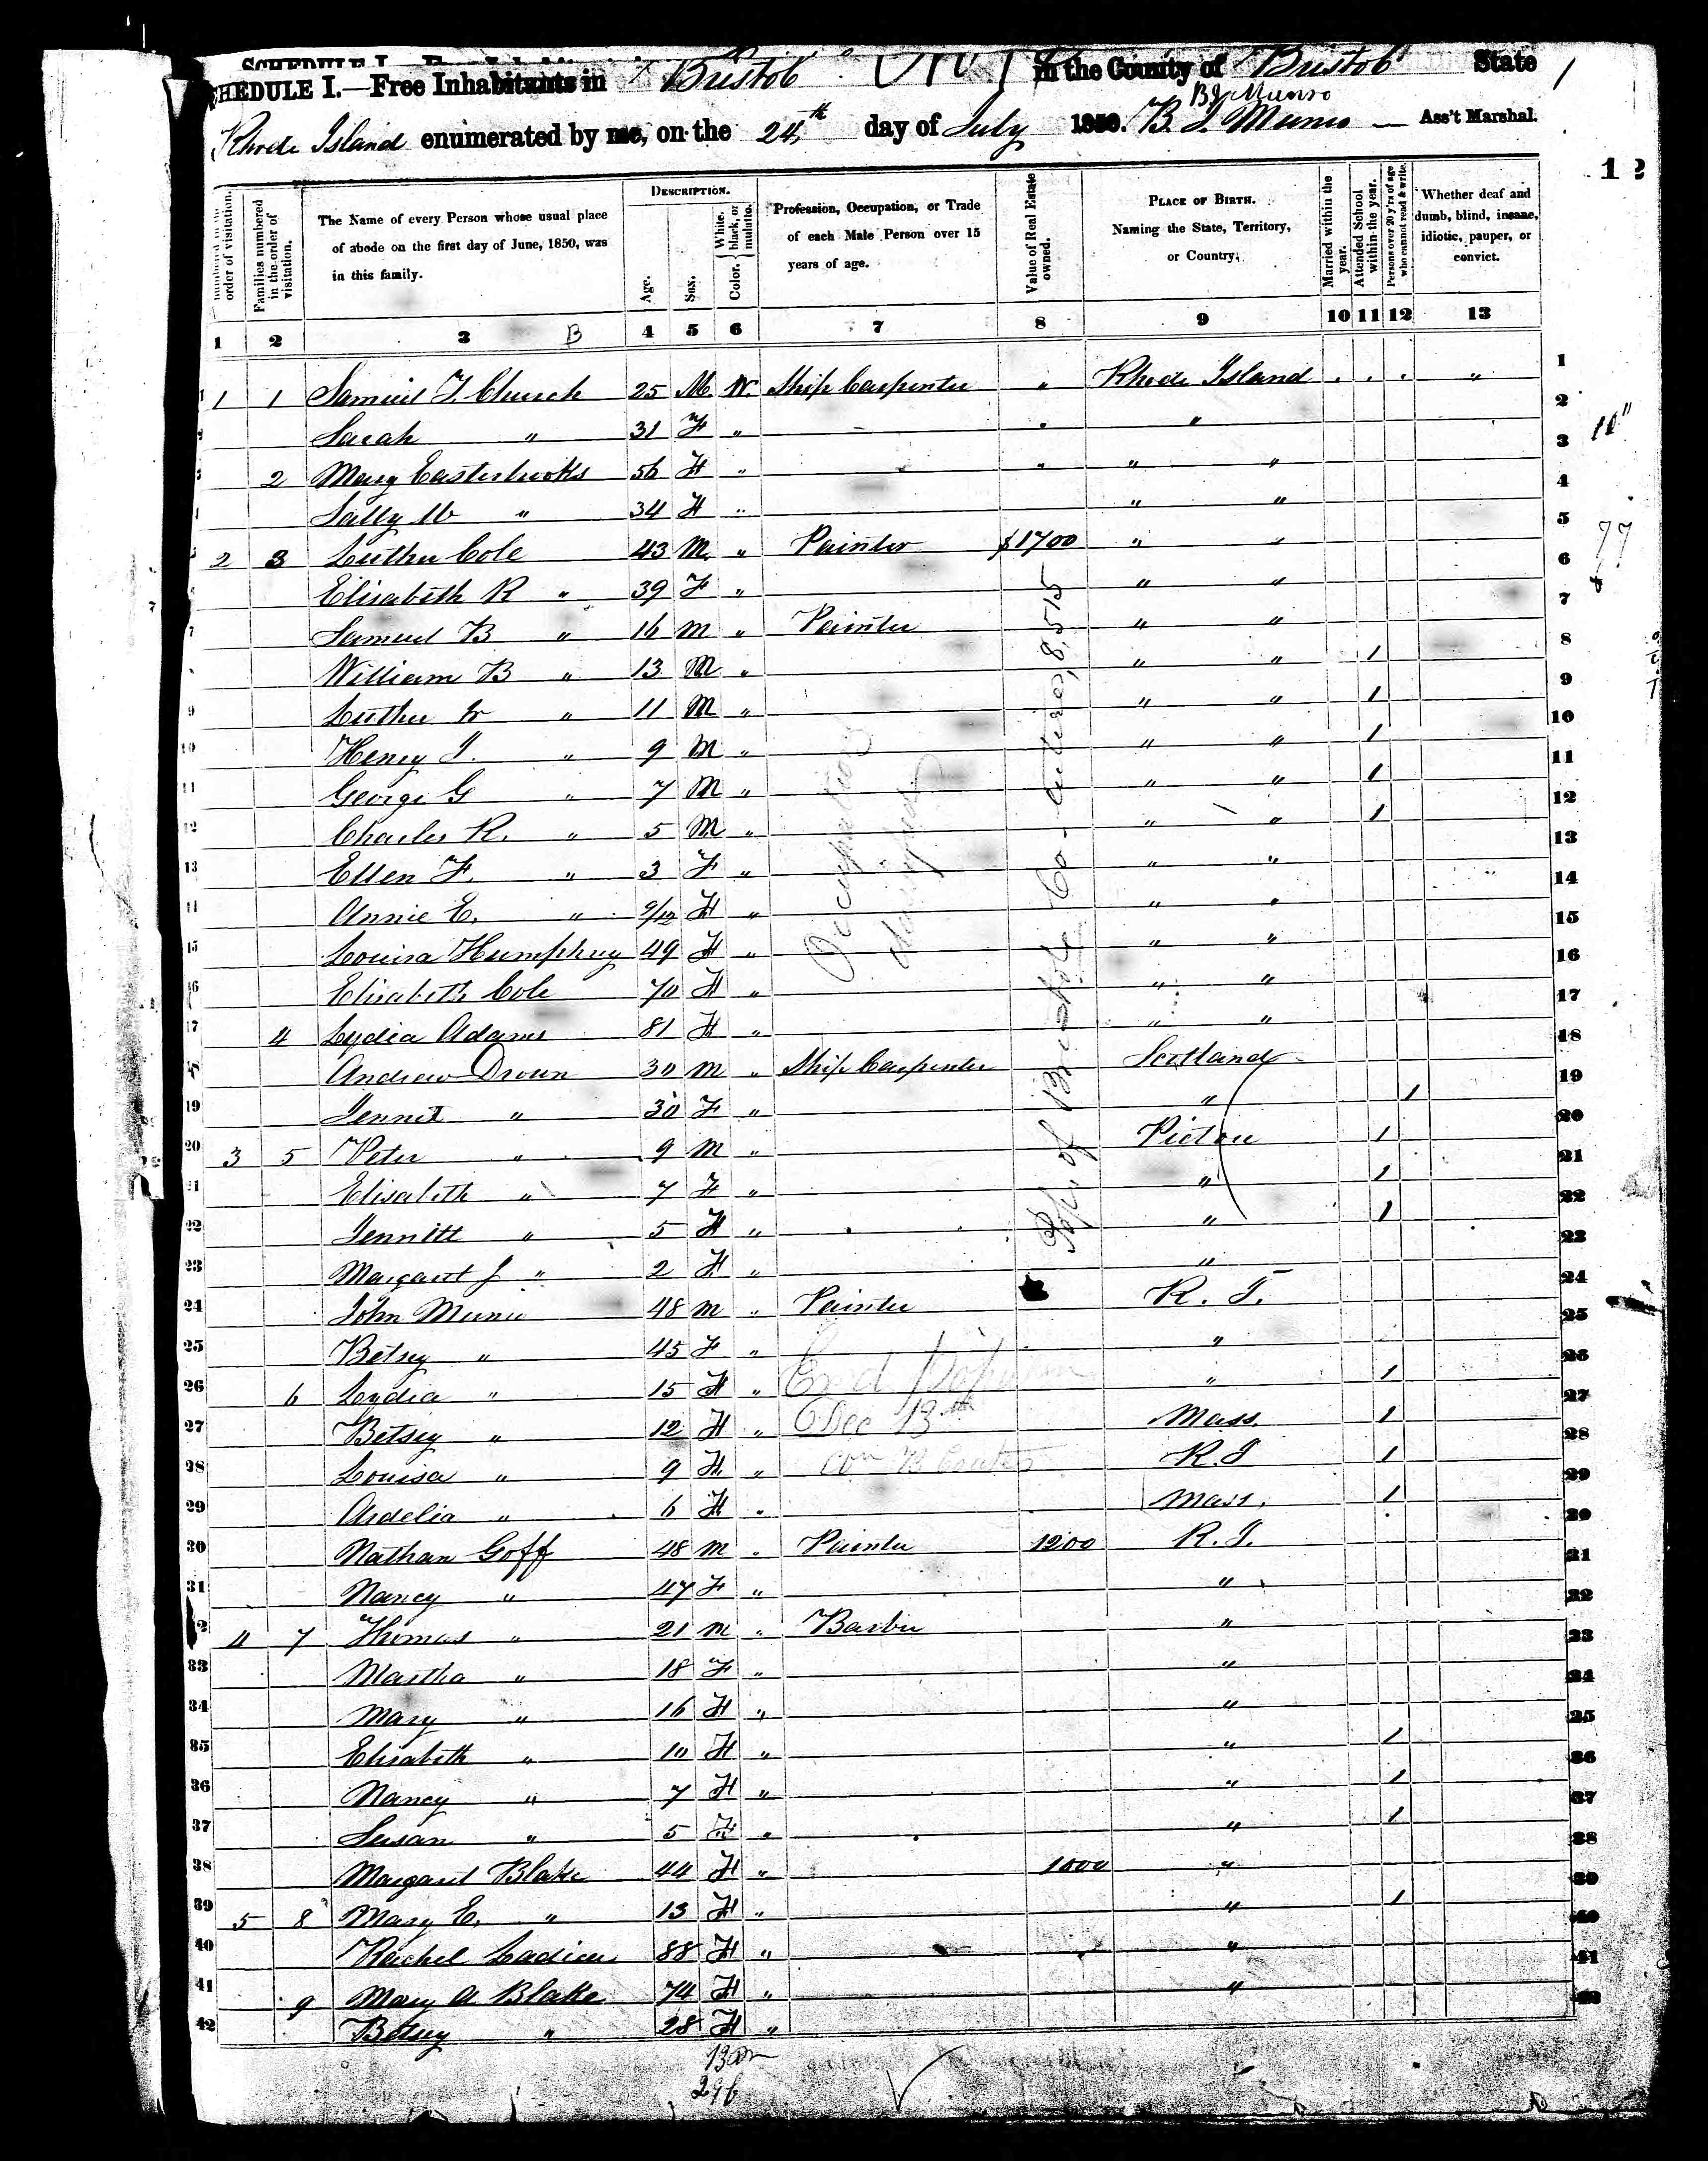 SCHEDULE I.—Free Inhabitants in Bristol in the County of Bristol State
Rhode Island enumerated by me, on the 24th day of July 1850. B. J. Munro Ass't Marshal.
B J Munro
12
order of visitation.
Families numbered in the order of visitation.
The Name of every Person whose usual place of abode on the first day of June, 1850, was in this family.
DESCRIPTION.
Age.
Sex.
Color. { White, black, or mulatto.
Profession, Occupation, or Trade of each Male Person over 15 years of age.
Value of Real Estate owned.
PLACE OF BIRTH. Naming the State, Territory, or Country.
Married within the year.
Attended School within the year.
Persons over 20 y'rs of age who cannot read & write.
Whether deaf and dumb, blind, insane, idiotic, pauper, or convict.
1 2 3 B 4 5 6 7 8 9 10 11 12 13
1 1 1 Samuel T. Church 25 M. W. Ship Carpenter " Rhode Island . . . " 1
Sarah " 31 F " " 2
2 Mary Easterbrooks 56 F " " " 3
Sally W " 34 F " " " 4
2 3 Luther Cole 43 M " Painter $1700 " " 5
Elisabeth R " 39 F " " " 6
7 Samuel B " 16 M " Painter " " 7
William B " 13 M " " " 1 8
9 Luther Jr " 11 M " " " 1 9
10 Henry J. " 9 M " " " 1 10
11 George G " 7 M " " " 1 11
12 Charles R. " 5 M " " " 1 12
13 Ellen F. " 3 F " " " 13
Annie E. " 9/12 F " " " 14
15 Louisa Humphrey 49 F " " " 15
16 Elisabeth Cole 70 F " " " 16
17 4 Lydia Adams 81 F " " " 17
18 Andrew Drown 30 M " Ship Carpenter Scotland 18
19 Jennet " 30 F " " 1 19
20 3 5 Peter " 9 M " Pictou 1 20
21 Elisabeth " 7 F " " 1 21
22 Jennett " 5 F " " 1 22
23 Margaret J " 2 F " " 23
24 John Munro 48 M " Painter R. I. 24
25 Betsey " 45 F " " 25
26 6 Lydia " 15 F " " 1 26
27 Betsey " 12 F " Mass. 1 27
28 Louisa " 9 F " R.I 1 28
29 Ardelia " 6 F " Mass. 1 29
30 Nathan Goff 48 M " Painter 1200 R.I. 30
31 Nancy " 47 F " " 31
32 4 7 Thomas " 21 M " Barber " 32
33 Martha " 18 F " " 33
34 Mary " 16 F " " 34
35 Elisabeth " 10 F " " 1 35
36 Nancy " 7 F " " 1 36
37 Susan " 5 F " " 1 37
38 Margaret Blake 44 F " 1000 " 38
39 5 8 Mary E. " 13 F " " 1 39
40 Rachel 88 F " " 40
41 9 Mary A Blake 74 F " " 41
42 Betsey " 28 F " 42
Occupation
Pop. of Bristol Co - entire, 8,515
Dec 13th
77
13 m
29 f